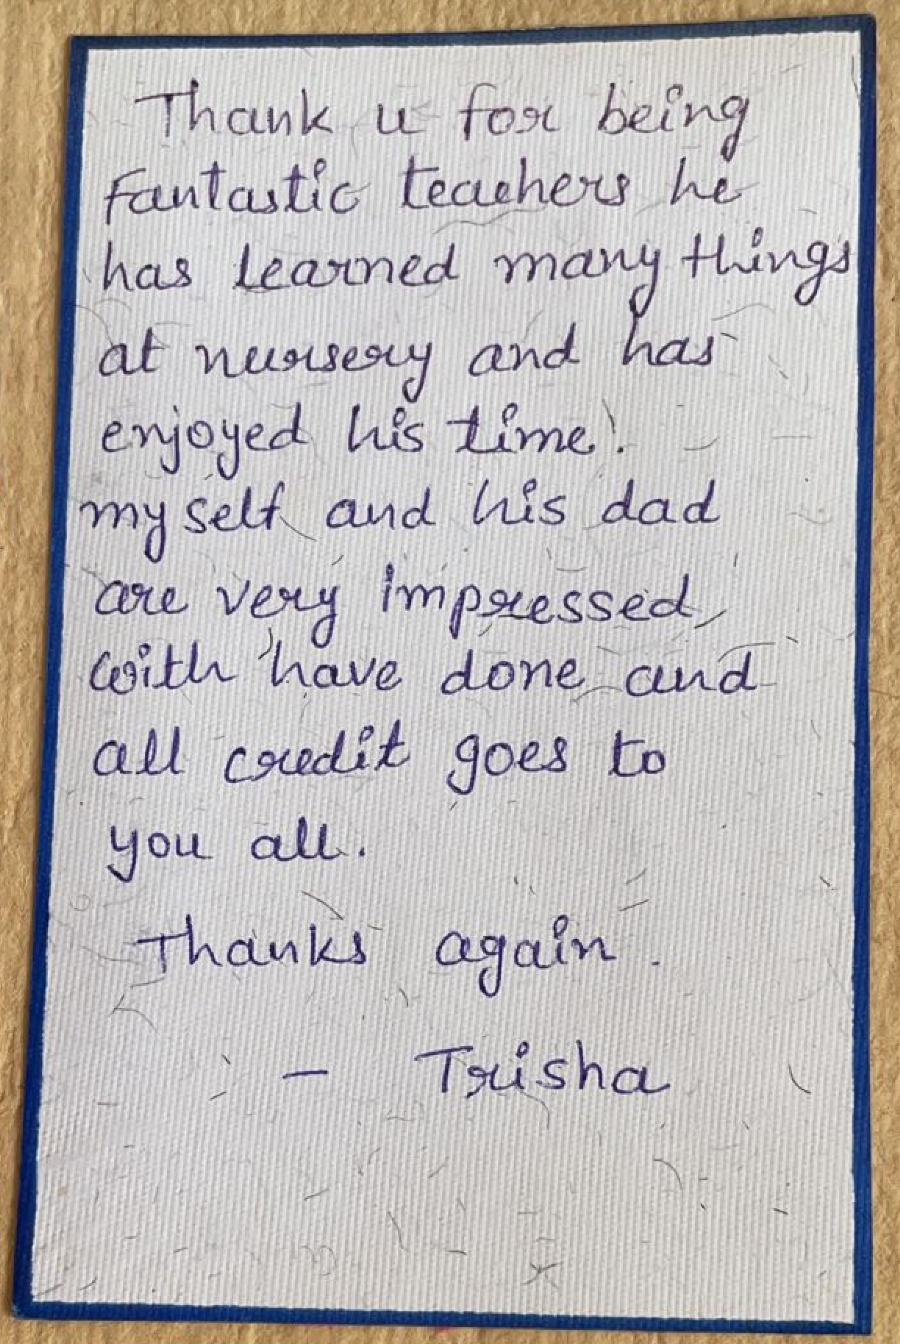 Thank u for being
fantastic teachers he
has learned many things
at nursery and has
enjoyed his time!
myself and his dad
are very impressed
with have done and
all credit goes to
you all.
Thanks again.
- Trisha